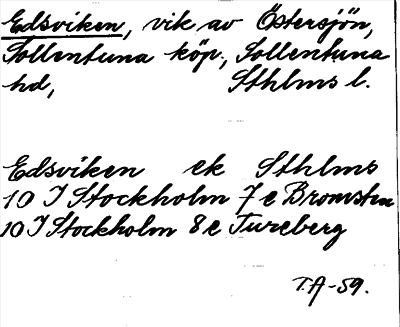 Edsviken, vik av Östersjön,
Sollentuna köp., Sollentuna
hd, Sthlms l.
Edsviken ek Sthlms
10 I Stockholm 7 e Bromsten
10 I Stockholm 8 e Tureberg
T.A-59.